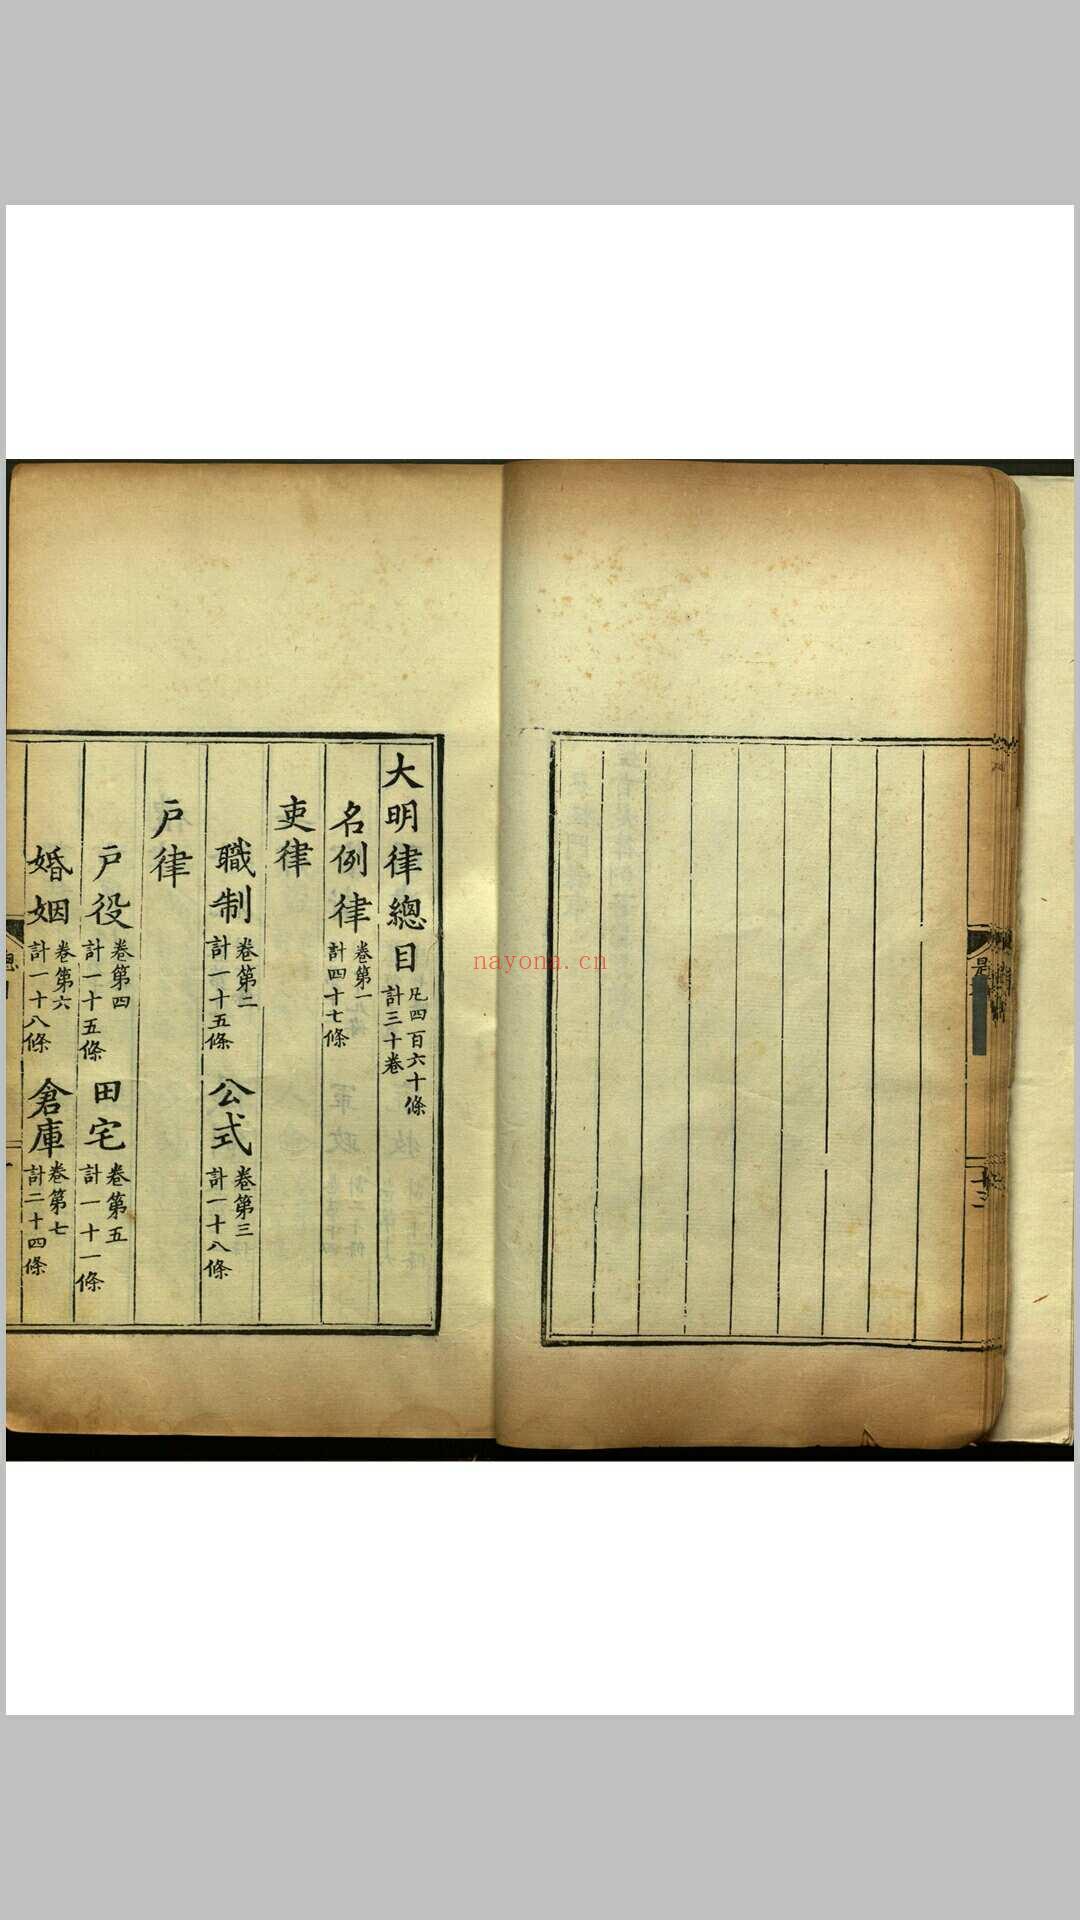 大明律總目凡四百六十條計三十卷
名例律卷第一計四十七條
吏律
職制卷第二計一十五條 公式卷第三計一十八條
戶律
戶役卷第四計一十五條 田宅卷第五計一十一條
婚姻卷第六計一十八條 倉庫卷第七計二十四條
nayona.cn